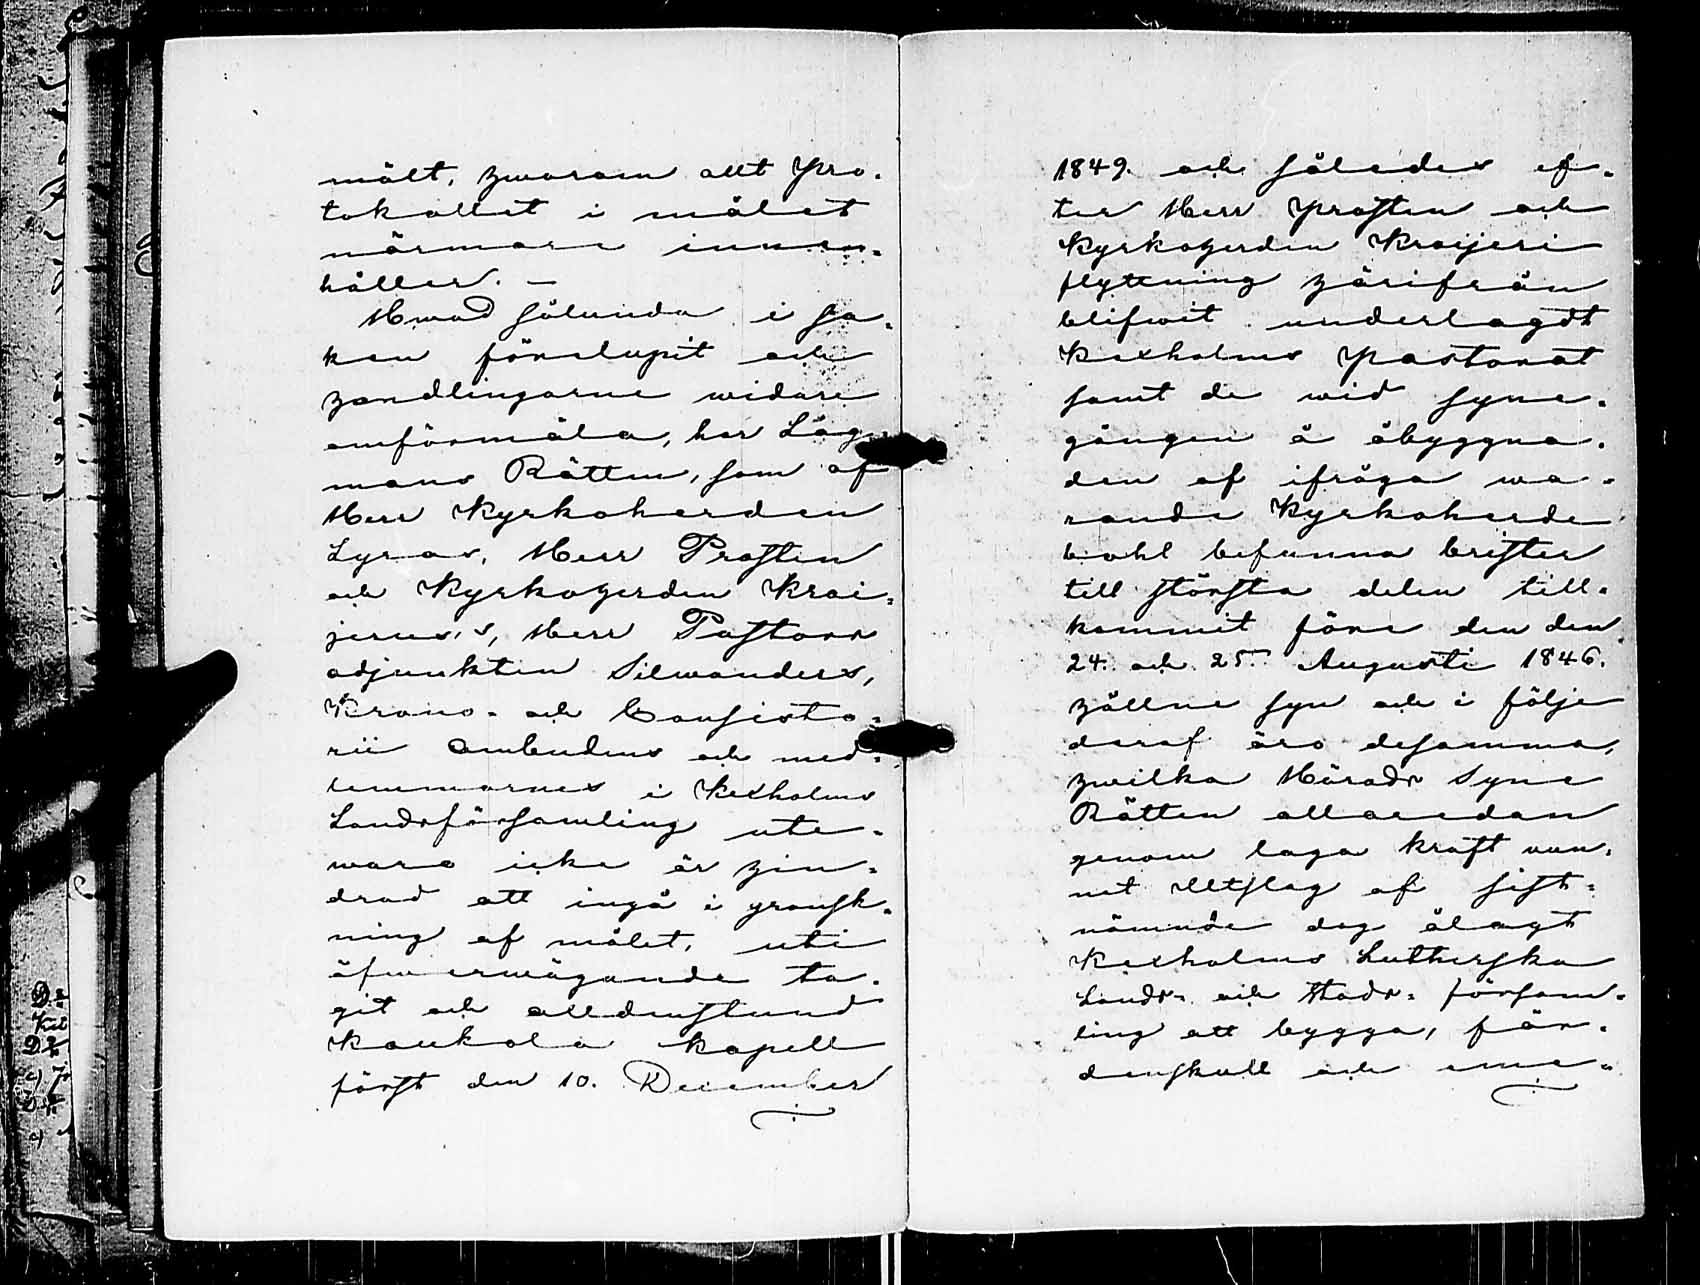 mält, hwarom allt Pro-
tokollet i målet
närmare inne-
håller. —
Hwad sålunda i sa-
ken förelupit och
handlingarne widare
omförmäla, har Lag-
mans Rätten, som af
Herr Kyrkoherden
Lyras, Herr Prosten
och Kyrkoherden Krai-
jerus's, Herr Pastors
adjunkten Silwanders,
Krono- och Consisto-
rii ombudens och med-
lemmarnes i Kexholms
Landsförsamling ute-
waro icke är hin-
drad att ingå i gransk-
ning af målet, uti
öfwerwägande ta-
git och alldenstund
Kaukola kapell
först den 10. December
1849. och således ef-
ter Herr Prosten och
Kyrkoherden Kraijeri
flyttning härifrån
blifwit underlagdt
Kexholms Pastorat
samt de wid syne-
gången å åbyggna-
den af ifråga wa-
rande Kyrkoherde
bohl befunna brister
till största delen till-
kommit före den den
24. och 25. Augusti 1846.
hållne syn och i följe
deraf äro desamma,
hwilka Härads Syne
Rätten allaredan
genom laga kraft wun-
net Utslag af sist-
nämnde dag ålagt
Kexholms Lutherska
Lands- och Stads- försam-
ling att bygga, för-
denskull och eme-